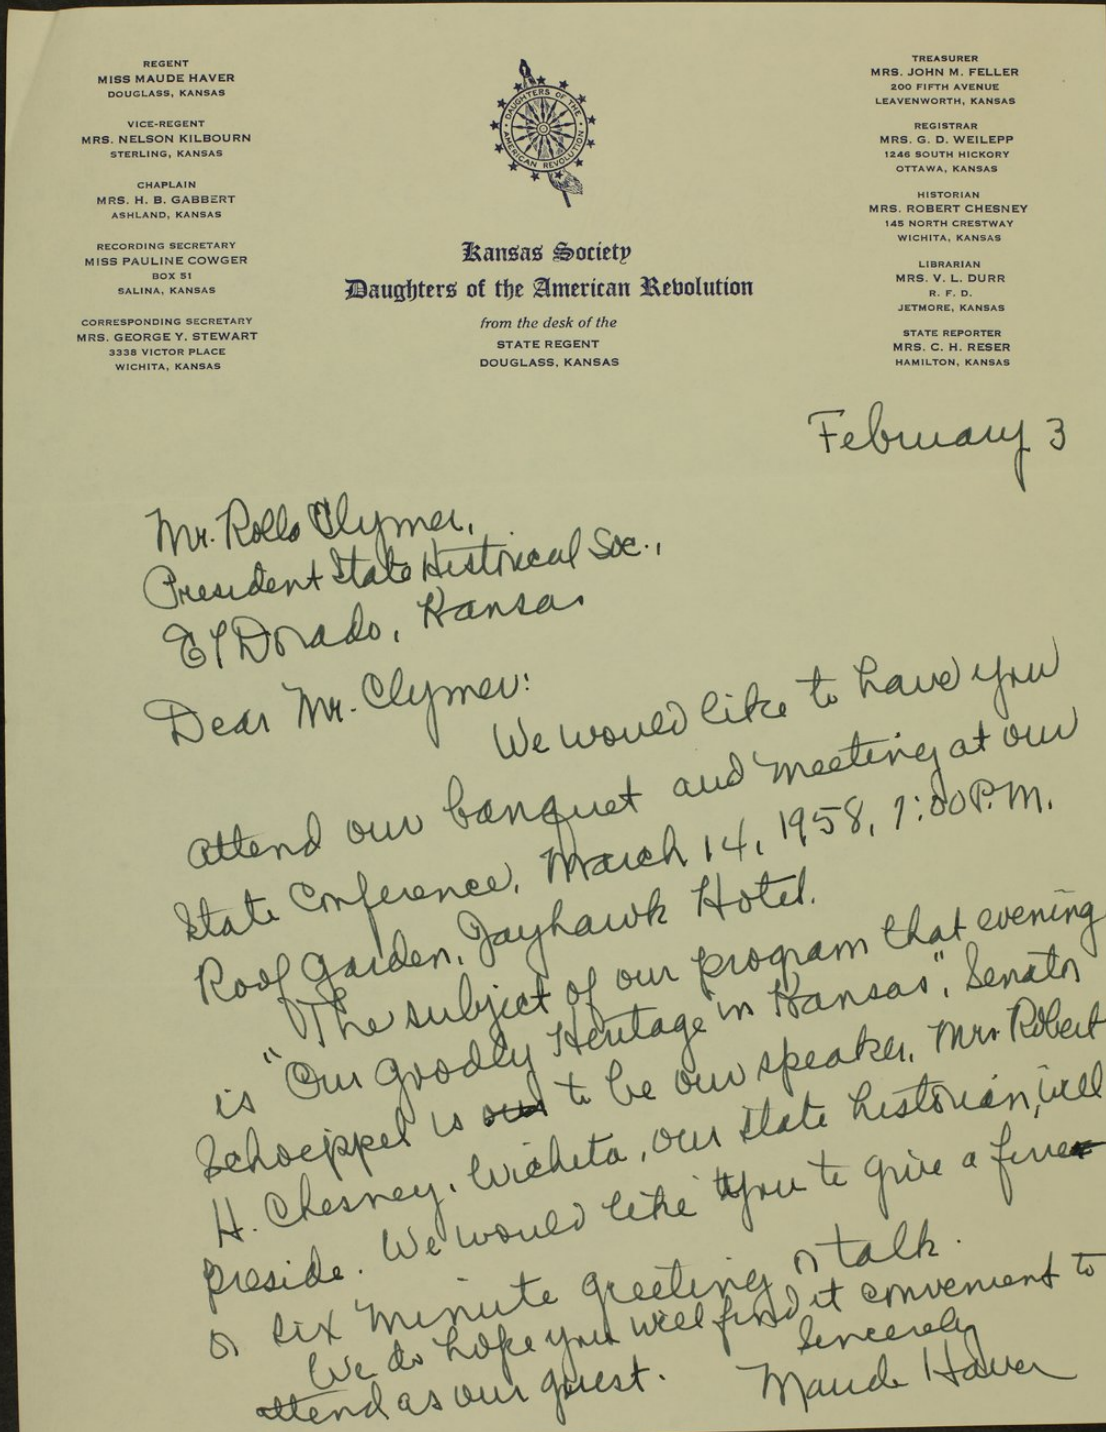 REGENT
MISS MAUDE HAVER
DOUGLASS, KANSAS
VICE-REGENT
MRS. NELSON KILBOURN
STERLING, KANSAS
CHAPLAIN
MRS. H. B. GABBERT
ASHLAND, KANSAS
RECORDING SECRETARY
MISS PAULINE COWGER
BOX 51
SALINA, KANSAS
CORRESPONDING SECRETARY
MRS. GEORGE Y. STEWART
3338 VICTOR PLACE
WICHITA, KANSAS
DAUGHTERS OF THE
AMERICAN REVOLUTION
Kansas Society
Daughters of the American Revolution
from the desk of the
STATE REGENT
DOUGLASS, KANSAS
TREASURER
MRS. JOHN M. FELLER
200 FIFTH AVENUE
LEAVENWORTH, KANSAS
REGISTRAR
MRS. G. D. WEILEPP
1246 SOUTH HICKORY
OTTAWA, KANSAS
HISTORIAN
MRS. ROBERT CHESNEY
145 NORTH CRESTWAY
WICHITA, KANSAS
LIBRARIAN
MRS. V. L. DURR
R. F. D.
JETMORE, KANSAS
STATE REPORTER
MRS. C. H. RESER
HAMILTON, KANSAS
February 3
Mr. Rollo Clymer,
President State Historical Soc.,
El Dorado, Kansas
Dear Mr. Clymer:
We would like to have you
attend our banquet and meeting at our
State Conference, March 14, 1958, 7:00 P.M.
Roof Garden, Jayhawk Hotel.
The subject of our program that evening
is "Our Goodly Heritage in Kansas", Senator
Schoeppel is our to be our speaker. Mrs. Robert
H. Chesney, Wichita, our state historian, will
preside. We would like you to give a five
or six minute greeting or talk.
We do hope you will find it convenient to
attend as our guest.
Sincerely
Maude Haver